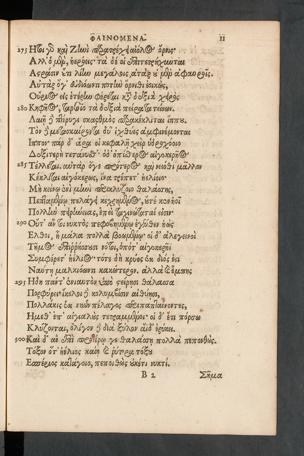 ΦΑΙΝΟΜΕΝΑ. 11
275 Ἤτοι γὰρ καὶ Ζηνὶ παρατρέχει αἰόλος ὄρνις.
Ἀλλ' ὁ μὲν ἠερόεις· τὰ δέ οἱ
Ἀστράσιν οὔτι λίην μεγάλοις, ἀτὰρ οὐ μὲν ἀφαυροῖς.
Αὐτὰρ ὅγ' εὐδιόωντι ποτὴν ὄρνιθι ἐοικὼς,
Οὔριος εἰς ἑτέρην φέρεται
280 Κηφῆος, ταρσοῖο τὰ δεξιὰ πείρατα τείνων.
Λαιῇ δὲ πτέρυγι σκαρθμὸς παρακέκλιται ἵππου.
Τὸν δὲ μετασκαίροντα δύ' ἰχθύες ἀμφινέμονται
Ἵππον· πὰρ δ' ἄρα οἱ κεφαλῇ χεὶρ ὑδροχόοιο
Δεξιτερὴ τετάνυσθ'· ὁ δ' ὀπίστερος αἰγοκερῆος
285 Τέλλεται. αὐτὰρ ὅγε πρότερος καὶ νειόθι μᾶλλον
Κέκλιται αἰγόκερως, ἵνα τρέπετ' ἠελίοιο
Μὴ κείνῳ ἐνὶ μηνὶ περικλύζοιο θαλάσσης,
Πεπταμένῳ πελάγει κεχρημένος. οὔτέ κεν ἠοῖ
Πολλὴν πειρήνειας, ἐπεὶ ταχινώταταί εἰσιν·
290 Οὔτ' ἄν τοι νυκτὸς πεφοβημένῳ ἐγγύθεν ἠὼς
Ἔλθοι, ἢ μάλα πολλὰ βοωμένῳ· οἱ δ' ἀλεγεινοὶ
Τῆμος ἐπιῤῥήσσουσι νότοι, ὁπότ' αἰγοκερῆϊ
Συμφέρετ' ἠέλιος· τότε δὲ κρύος ἐκ διός ἐστι
Ναύτῃ μαλκιόωντι κακώτερον. ἀλλὰ καὶ ἔμπης
295 Ἤδη πάντ' ἐνιαυτὸν ὑπὸ στείρῃσι θάλασσα
Πορφύρει· ἴκελοι δὲ κολυμβίσιν αἰθυίῃσι,
Πολλάκις ἐκ νηῶν πέλαγος περιπαπταίνοντες,
Ἥμεθ' ἐπ' αἰγιαλοὺς τετραμμένοι· οἱ δ' ἔτι πόρσω
Κλύζονται, ὀλίγον δὲ διὰ ξύλον ἄϊδ' ἐρύκει.
300 Καὶ δ' ἂν ἐπὶ προτέρῳ γε θαλάσσῃ πολλὰ πεπονθὼς,
Τόξον ὅτ' ἠέλιος καίει καὶ ῥύτορα τόξου
Ἑσπέριος κατάγοιο, πεποιθὼς οὐκέτι νυκτί.
B 2 Σῆμα